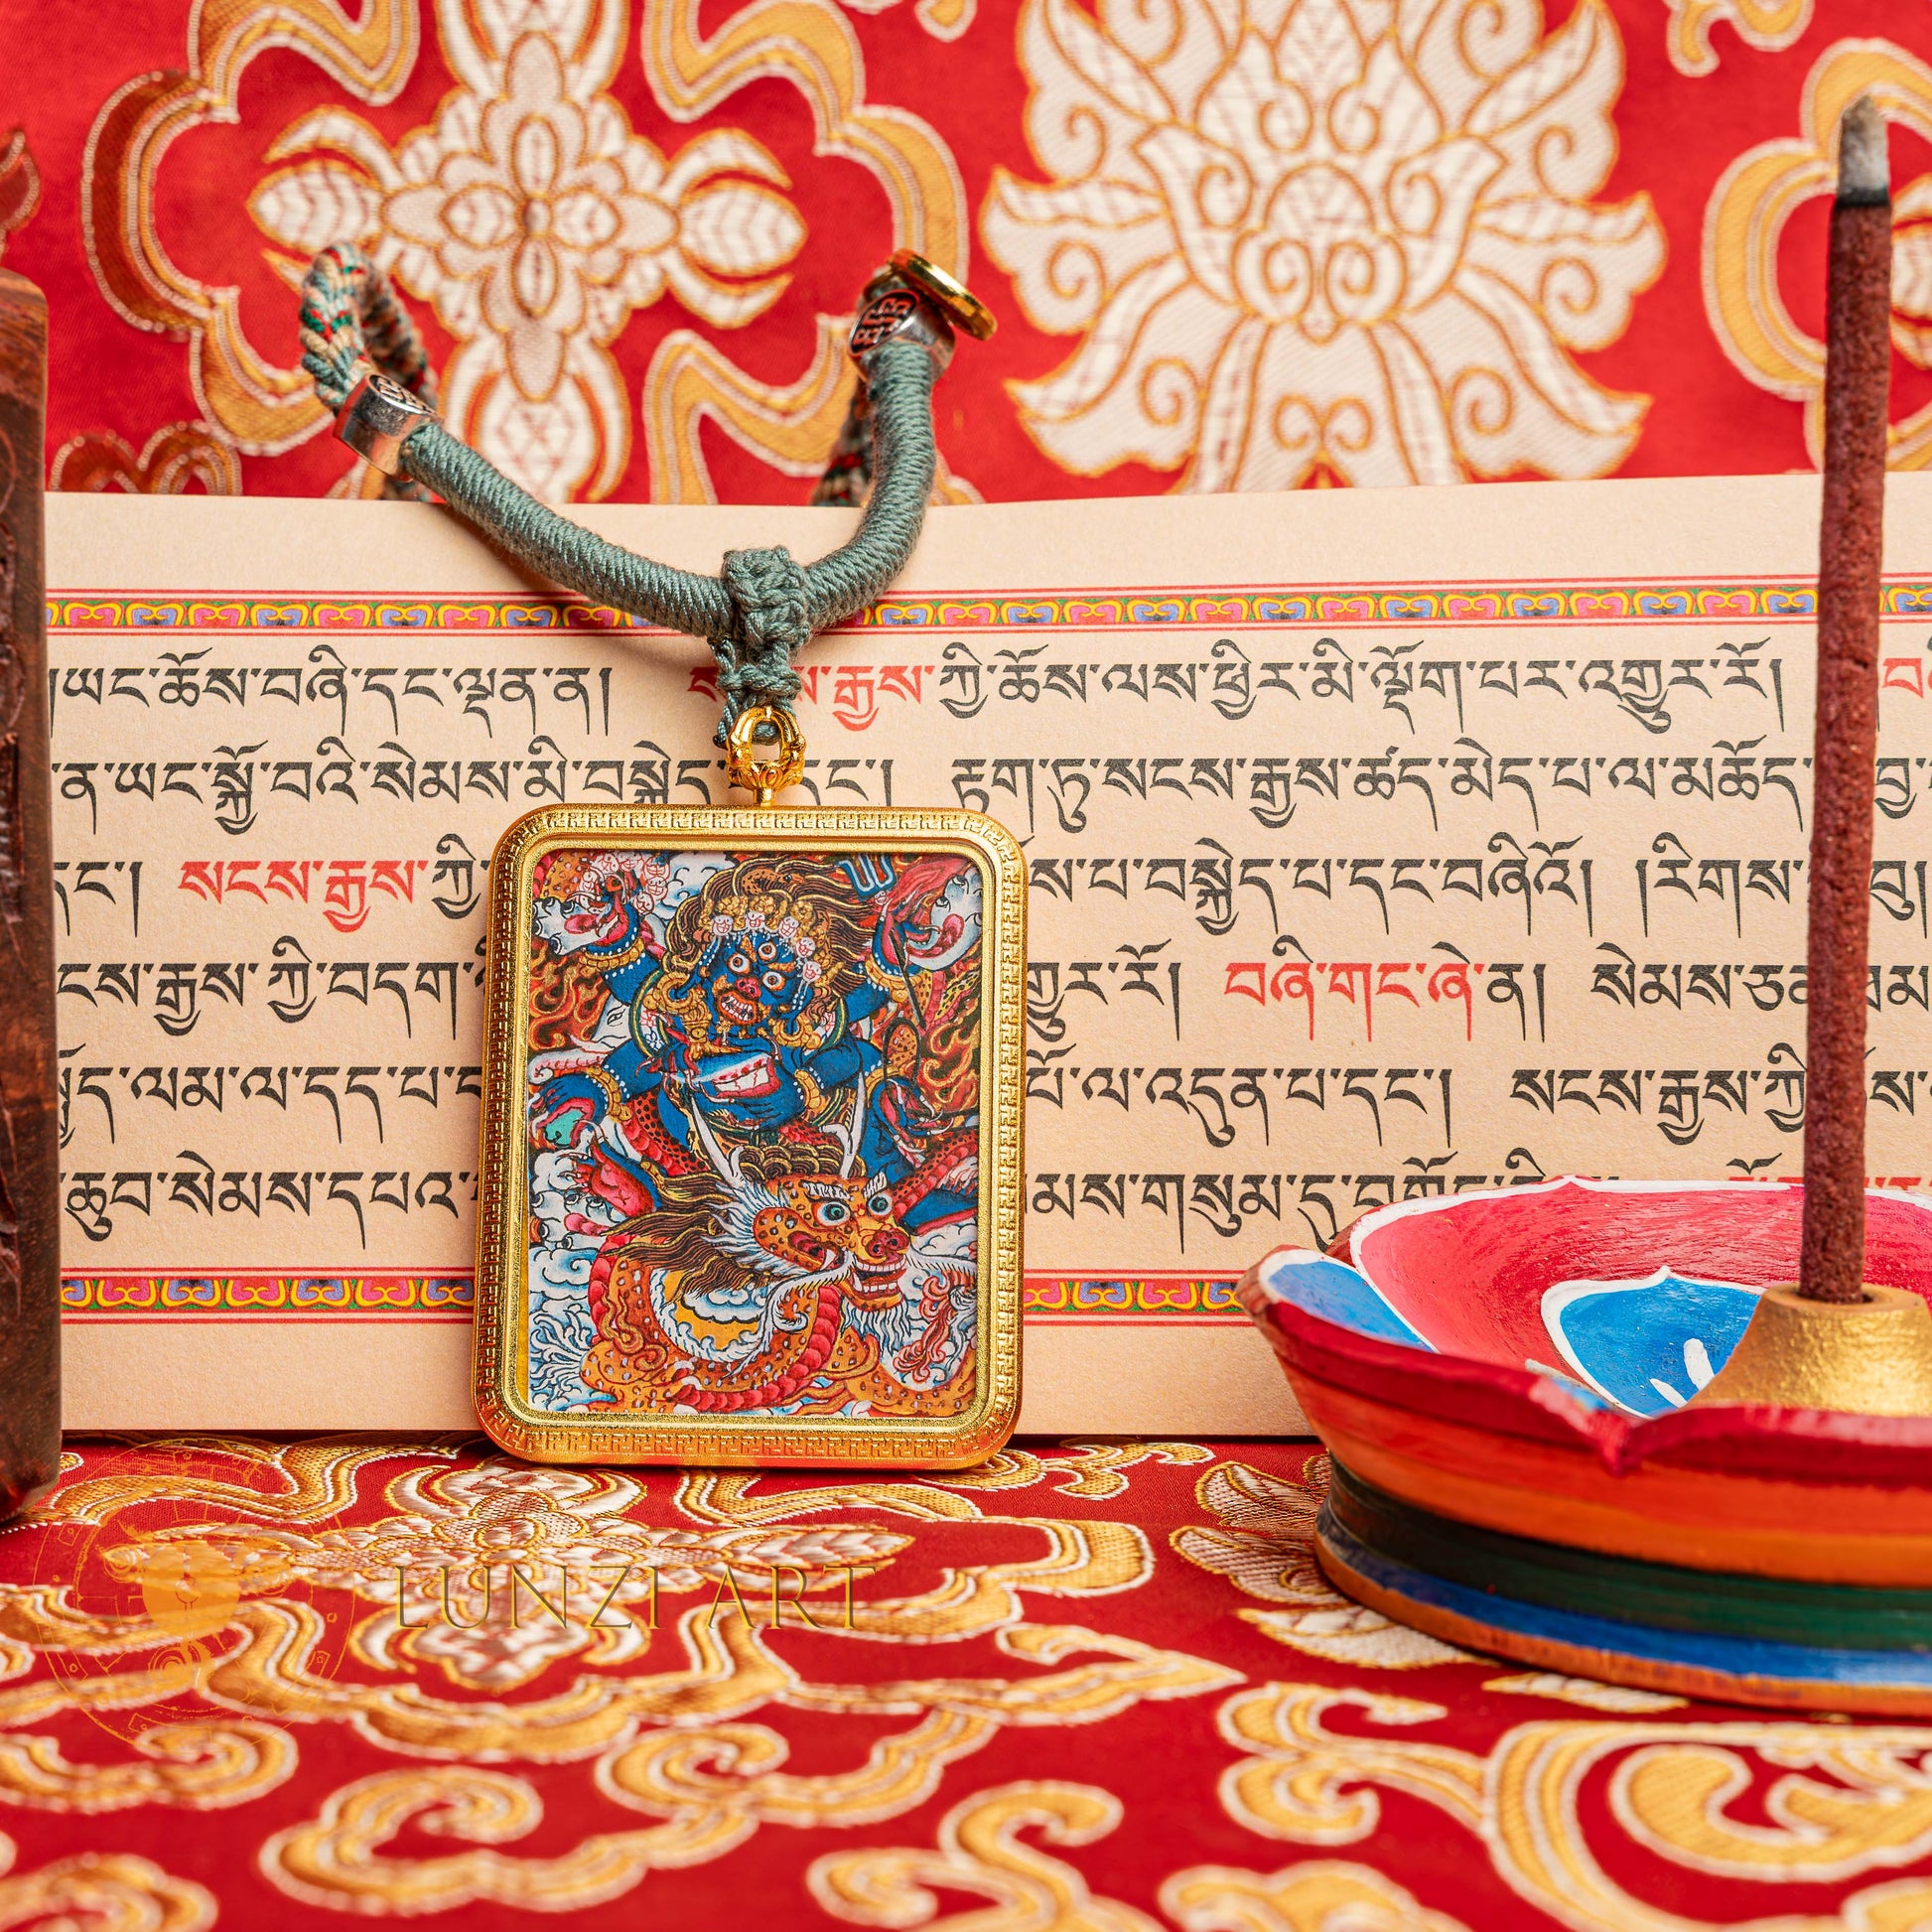 །ཡང་ཆོས་བཞི་དང་ལྡན་ན། རྒྱས་ཀྱི་ཆོས་ལས་ཕྱིར་མི་ལྡོག་པར་འགྱུར་རོ།
ན་ཡང་སྐྱོ་བའི་སེམས་མི་བསྐྱེད་ དང་། རྟག་ཏུ་སངས་རྒྱས་ཚད་མེད་པ་ལ་མཆོད་
དང་། སངས་རྒྱས་ཀྱི་ པ་བསྐྱེད་པ་དང་བཞིའོ། །རིགས་ བུ།
ངས་རྒྱས་ཀྱི་བདག་ གྱུར་རོ། བཞི་གང་ཞེ་ན། སེམས་ཅན་
ལམ་ལ་དད་པ་ ལ་འདུན་པ་དང་། སངས་རྒྱས་ཀྱི་
ཆུབ་སེམས་དཔའ་ གསུམ་དུ་
LUNZI ART